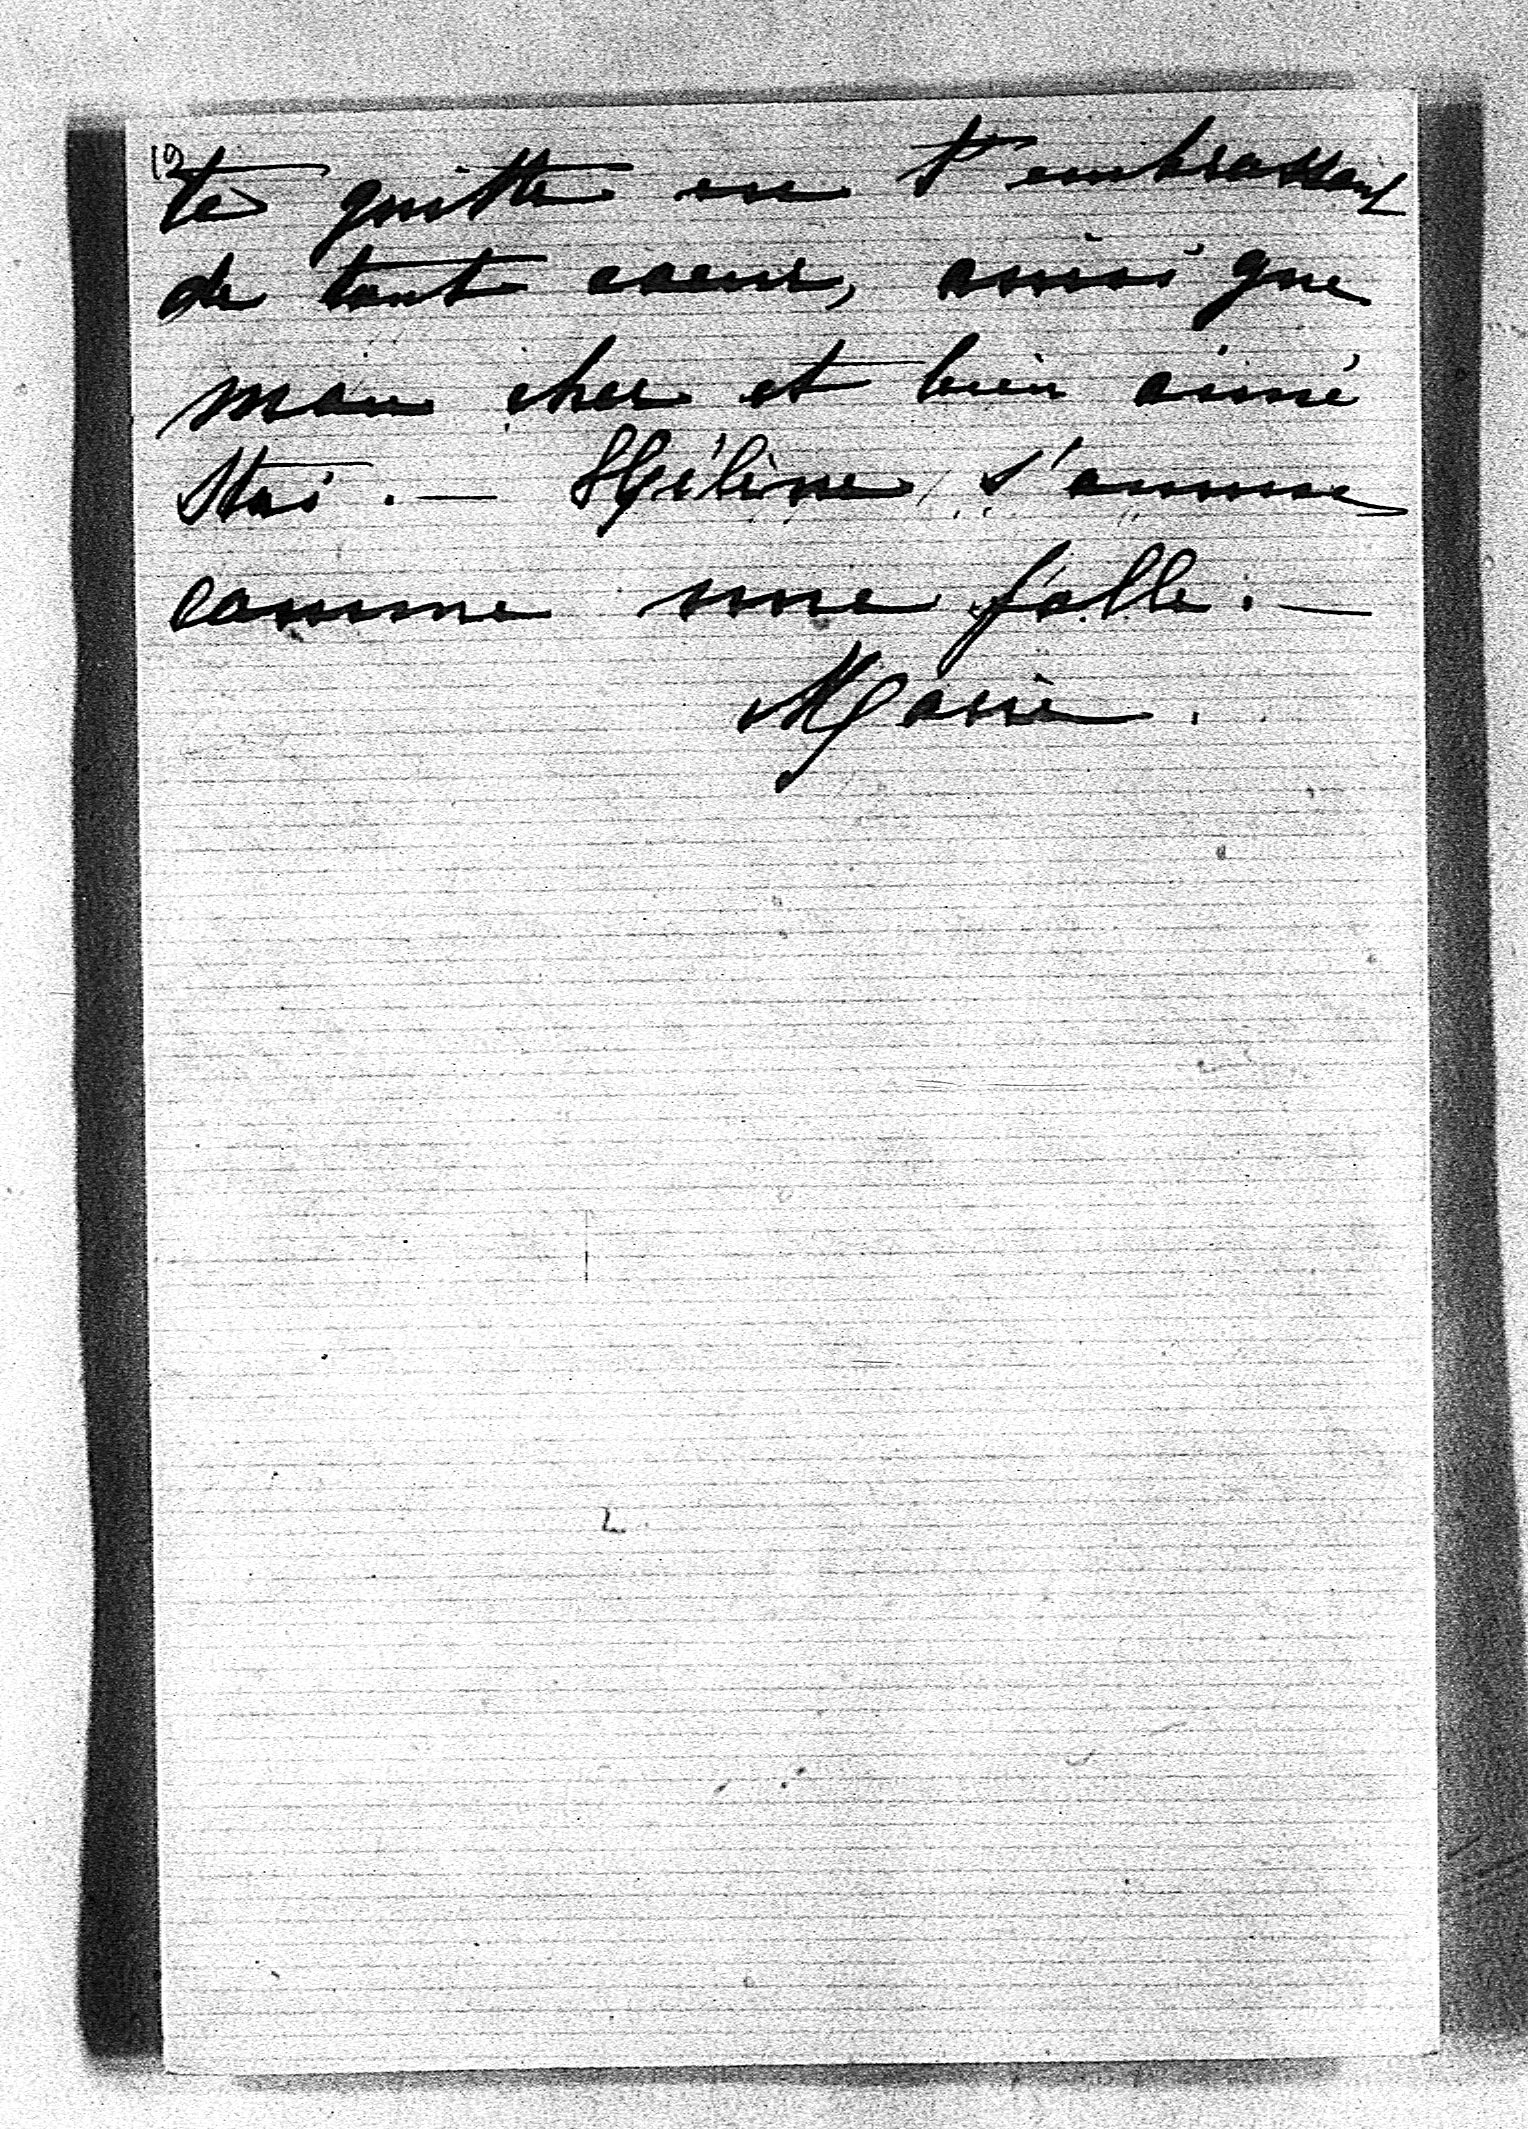 12
te quitte en t'embrassant
de tout coeur, ainsi que
mon cher et bien aimé
Stas. — Hélène s'amuse
comme une folle. —
Marie.